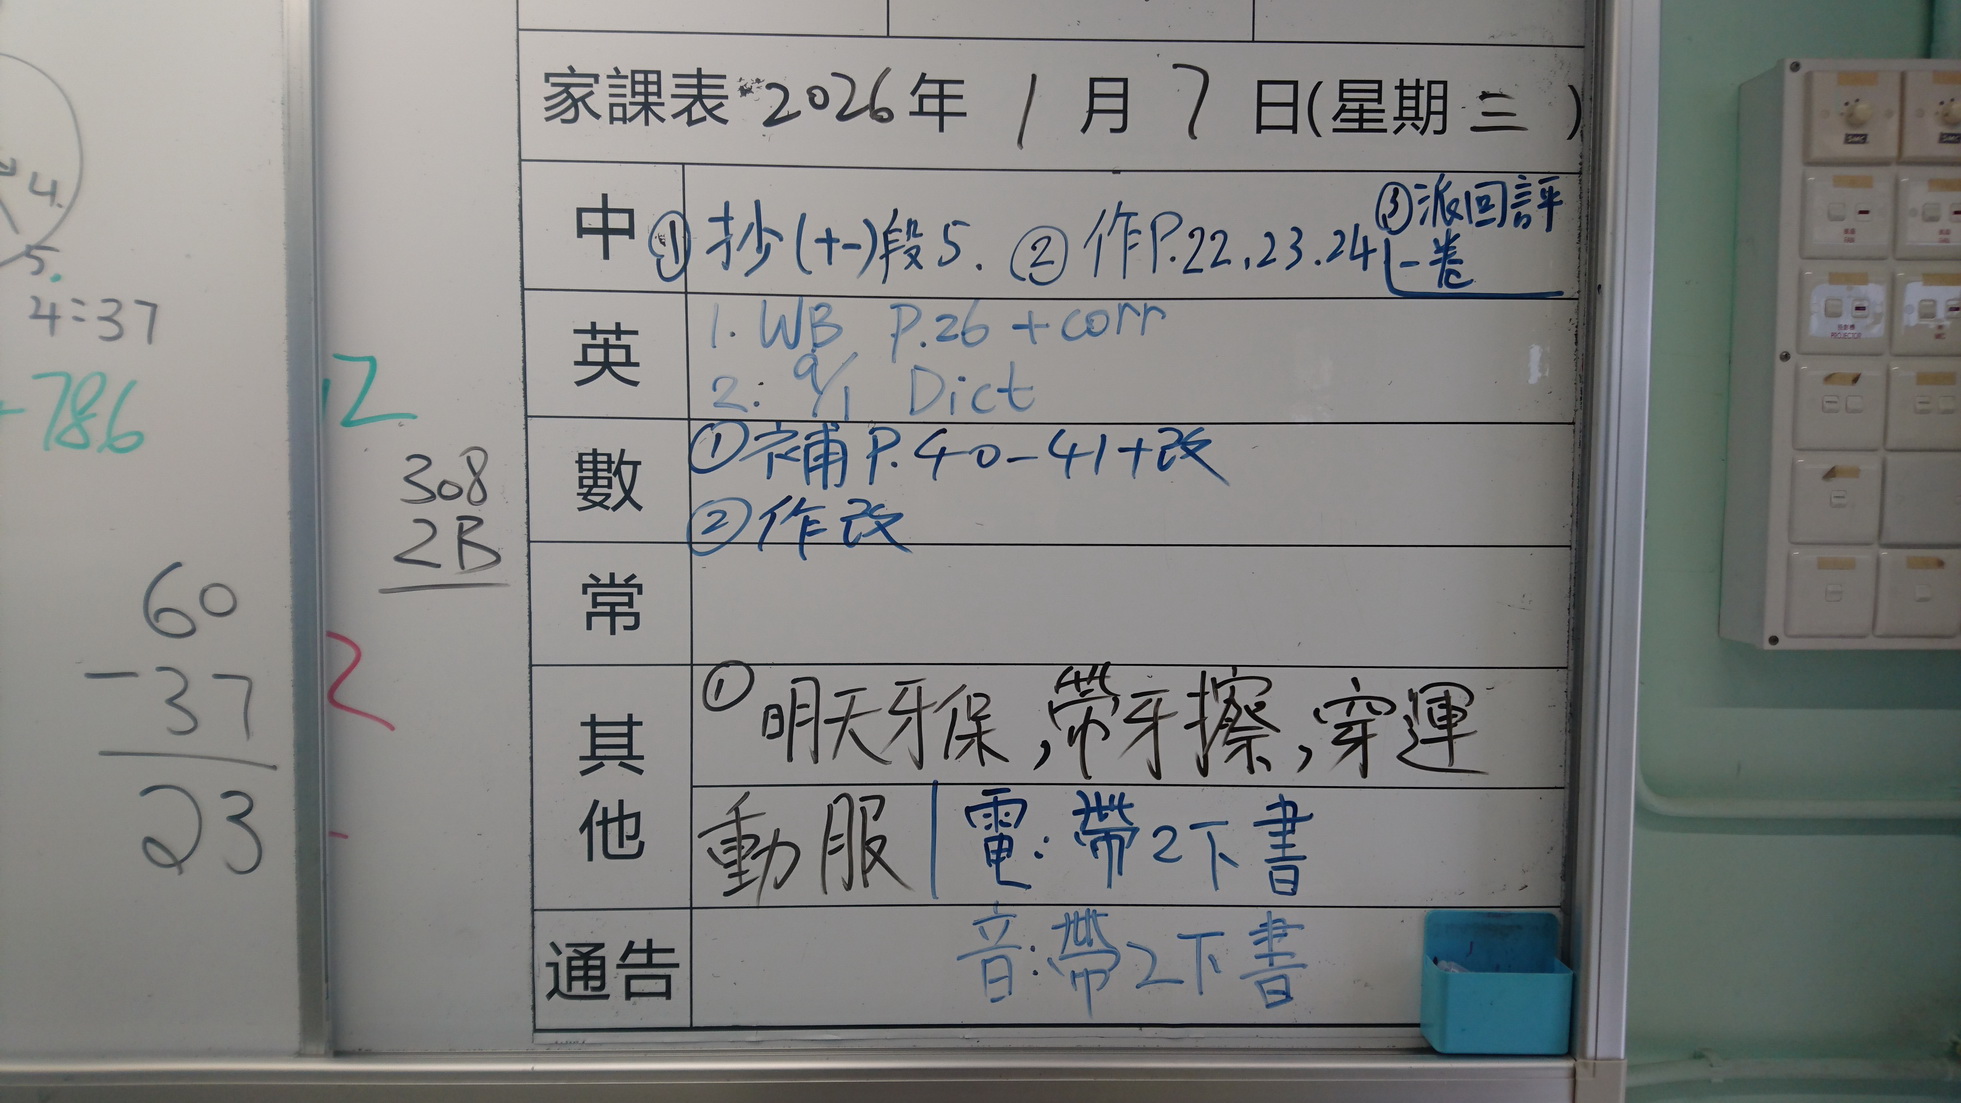 家課表 2026年 1月 7日(星期三)
中 ① 抄(十一)段5. ② 作P.22,23.24 ③派回評一卷
英 1. WB P.26 + corr
2: 9/1 Dict
數 ①補P.40-41+改
②作改
常
其他 ①明天牙保,帶牙擦,穿運
動服 電:帶2下書
通告 音:帶2下書
4.
5.
4:37
786
2
308
2B
60
-37
23
2